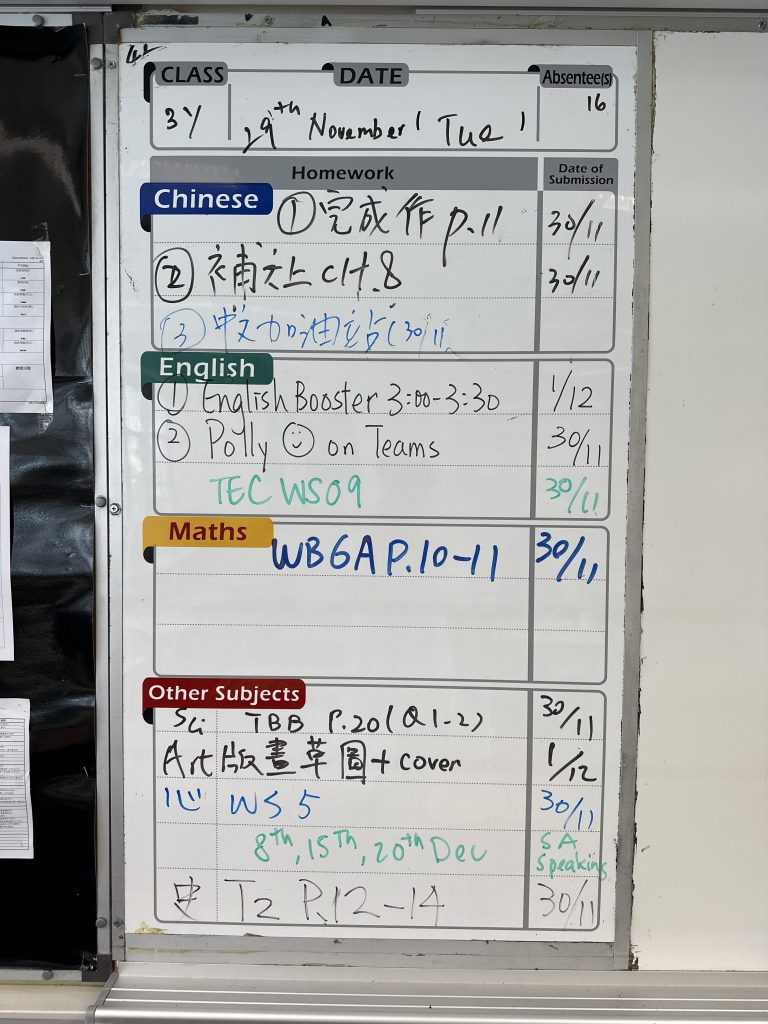 CLASS DATE Absentee(s)
3Y 29th November (Tue) 16
Homework Date of Submission
Chinese ①完成作 p.11 30/11
② 補充上 CH.8 30/11
③ 中文加油站 (30/11
English
① English Booster 3:00-3:30 1/12
② Polly ☺ on Teams 30/11
TEC WS09 30/11
Maths
WB6A P.10-11 30/11
Other Subjects
Sci TBB P.20 (Q1-2) 30/11
Art 版畫草圖 + cover 1/12
心 WS 5 30/11
8th, 15th, 20th Dec SA Speaking
史 T2 P.12-14 30/11